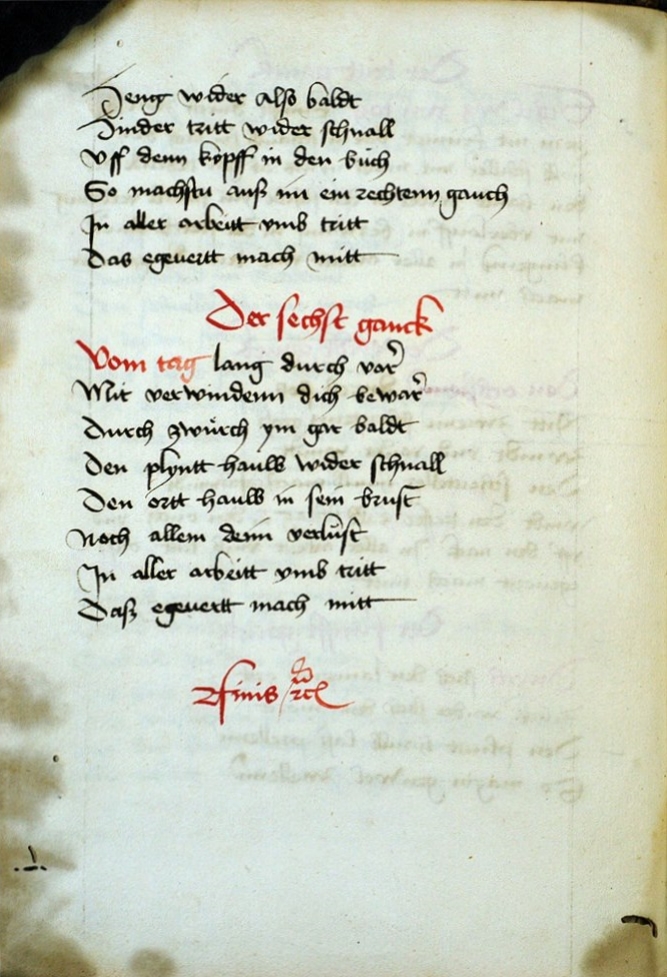 Heng wider also baldt
Hinder tritt wider schnall
Vff denn kopff in den buch
So machstu auß im ein rechtenn gauch
In aller arbeitt vmb tritt
Das egevertt mach mitt
Der sechst ganck
Vom tag lang durch var
Mit verwindenn dich bewar
Durch zwürch ym gar baldt
Den plyntt hauw wider schnall
Den ortt hauw in sein brust
Noch allem denn verlust
In aller arbeitt vmb tritt
Daß egevertt mach mitt
Finis